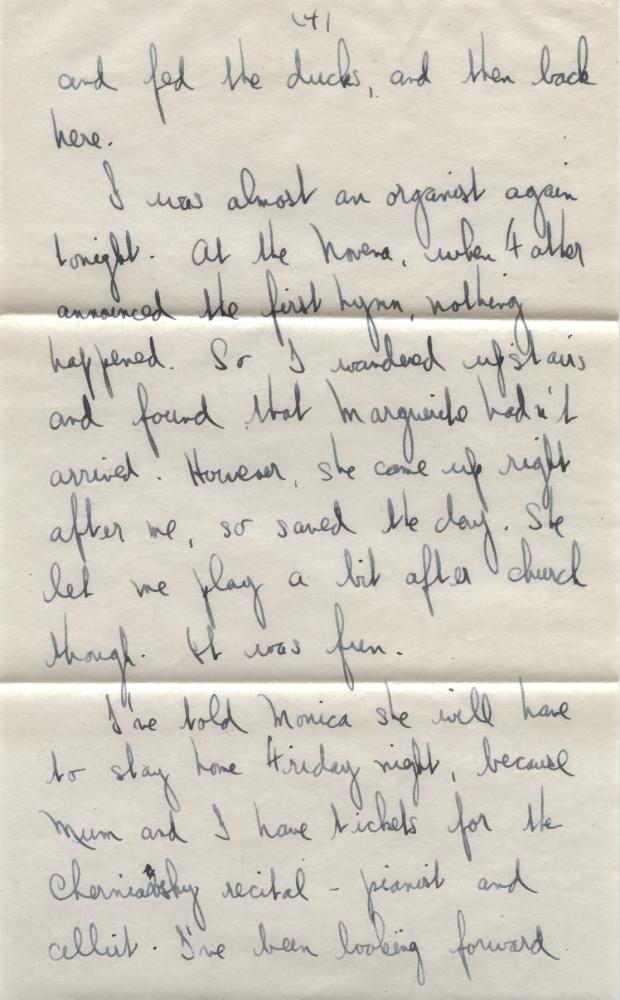 (4)
and fed the ducks, and then back
here.
I was almost an organist again
tonight. At the Novena, when Father
announced the first hymn, nothing
happened. So I wandered upstairs
and found that Marguerite hadn't
arrived. However, she came up right
after me, so saved the day. She
let me play a bit after church
though. It was fun.
I've told Monica she will have
to stay home Friday night, because
Mum and I have tickets for the
Cherniavsky recital - pianist and
cellist. I've been looking forward